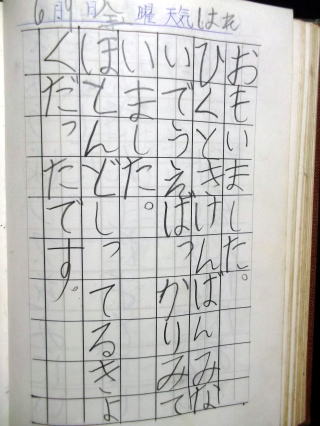 6月9日金曜 天気はれ
おもいました。
ひくときけんばんみな
いでうえばっかりみて
いました。
ほとんどしってるきょ
くだったです。